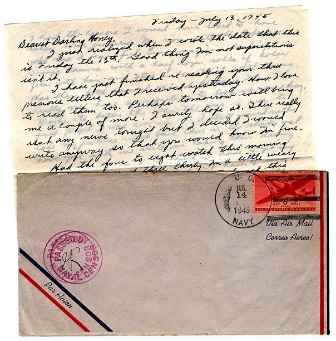 Friday - July 13, 1945
Dearest Darling Honey,
I just realized when I wrote the date that this
is Friday the 13th. Good thing I'm not superstitious
isn't it.
I have just finished re reading your three
precious letters that I received yesterday. How I love
to read them too. Perhaps tomorrow will bring
me a couple of more. I surely hope so. There really
isn't any news tonight but I decided I would
write anyway so that you would know I'm fine.
Had the four to eight watch this morning
thirty. I'm a little
U.S.
JUL
14
1945
NAVY
Via Air Mail
Correo Aereo
PASSED BY
NAVAL CENSOR
Par Avion